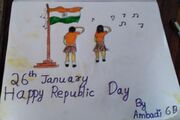 26th January
Happy Republic Day
By
Ambadi G B